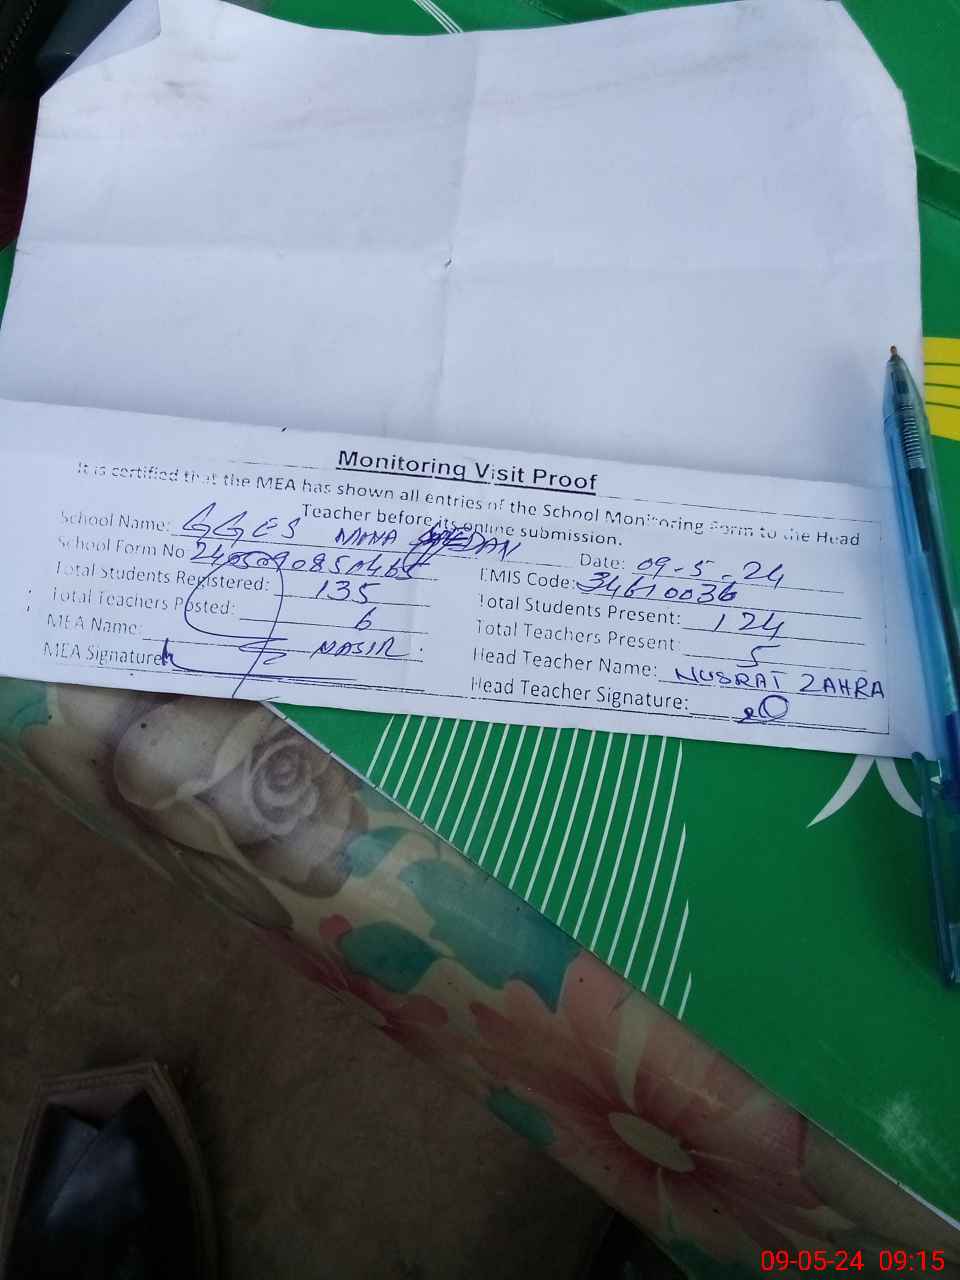 Monitoring Visit Proof
It is certified that the MEA has shown all entries of the School Monitoring Form to the Head
Teacher before its online submission.
School Name: GGES MANA
Date: 09-5-24
School Form No
EMIS Code: 34610036
Total Students Registered: 135
Total Students Present: 124
Total Teachers Posted: 6
Total Teachers Present: 5
MEA Name: NASIR
Head Teacher Name: NUSRAT ZAHRA
MEA Signature
Head Teacher Signature:
09-05-24 09:15